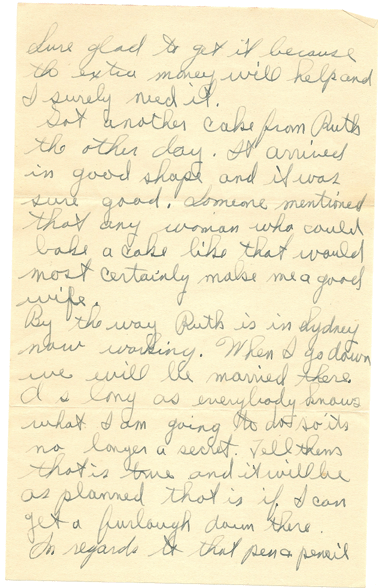 Sure glad to get it because
the extra money will help and
I surely need it.
Got another cake from Ruth
the other day. It arrived
in good shape and it was
sure good. Someone mentioned
that any woman who could
bake a cake like that would
most certainly make me a good
wife.
By the way Ruth is in Sydney
now working. When I go down
we will be married there.
As long as everybody knows
what I am going to do so its
no longer a secret. Tell them
that is true and it will be
as planned that is if I can
get a furlough down there.
In regards to that pen & pencil